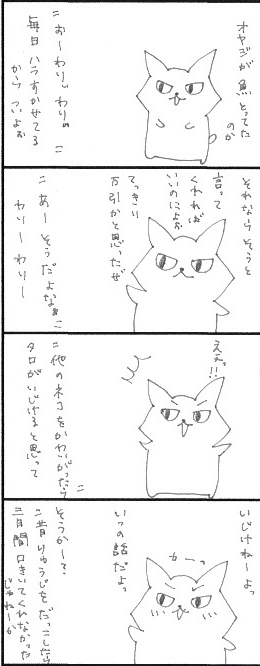 オヤジが魚とってた
のか
=おーわりぃわりぃ=
毎日ハラすかせてる
からついよお
それならそうと
言って
くれれば
いいのによお
てっきり
万引かと思ったぜ
=あーそうだよなぁ=
わりーわりー
ええっ!!
=他のネコをかわいがったら
タロがいじけると思って=
いじけねーよっ
カーっ
いつの話だよっ
そうかー?
=昔りゅうじをだっこしたら
三日間口きいてくれなかった
じゃねーか